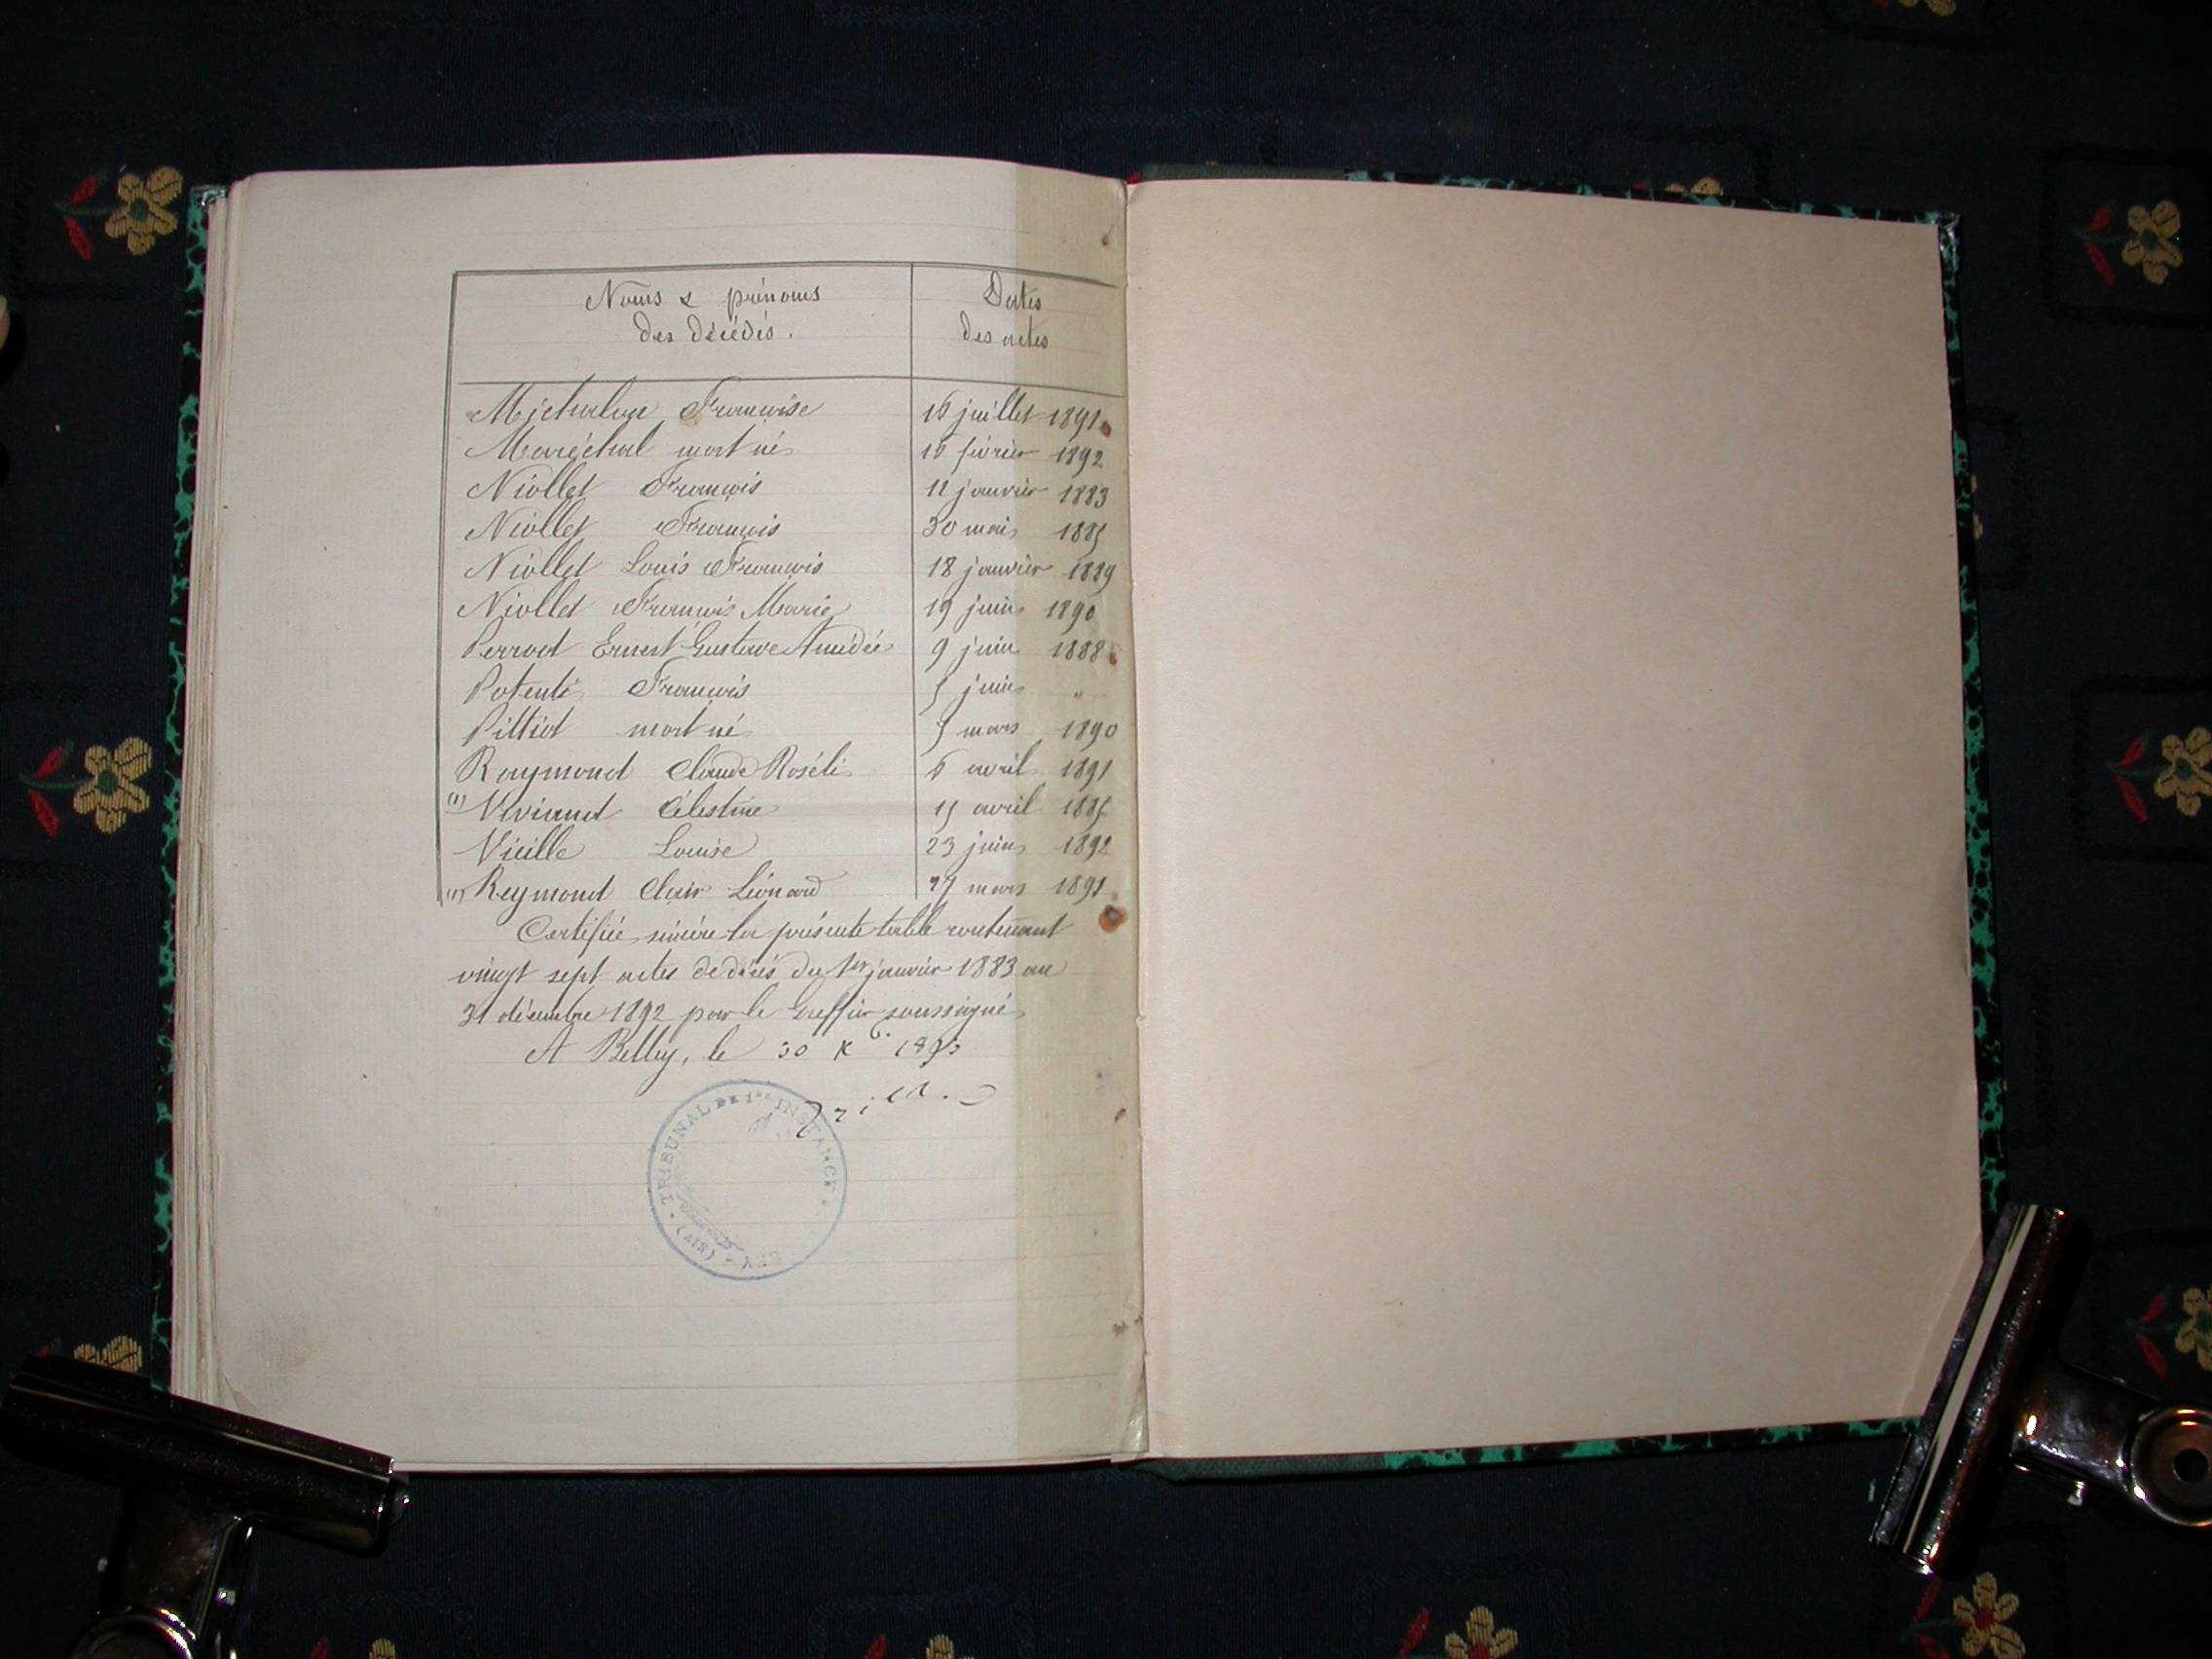 Noms & prénoms
des décédés.
Dates
des actes
Françoise 16 juillet 1891
Maréchal mort né 16 février 1892
Niollet François 11 janvier 1883
Niollet François 30 mai 1885
Niollet Louis François 18 janvier 1889
Niollet François Marie 19 juin 1890
Perrod Ernest Gustave Amédée 9 juin 1888
François 5 juin "
mort né 5 mars 1890
Raymond Claude 6 avril 1891
(1) Célestine 15 avril 1885
Vieille Louise 23 juin 1892
(1) Reymond Clair Léonard mars 1891
Certifiée sincère la présente table contenant
vingt sept actes de décès du 1er janvier 1883 au
31 décembre 1892 par le Greffier soussigné
A Belley, le 30 1893
TRIBUNAL DE 1re INSTANCE
LEY - (AIN)